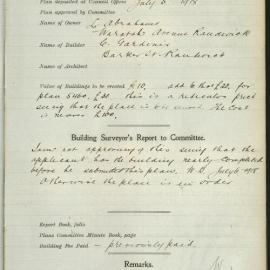 Plan deposited at Council Offices July 5 1918
Plan approved by Committee
Name of Owner L Abrahams
Waratah Avenue Randwick
Name of Builder C. Gardener
Barker St. Randwick
Name of Architect
Value of Buildings to be erected £10, add to that £20, for
plan £400. £20 this is a ridiculous price
seeing that the place is so much. The cost
is more £100.
Building Surveyor's Report to Committee.
I am not approving of this seeing that the
applicant has the building nearly completed
before he submitted his plans. W.D. July 6 1918
Otherwise the place is in order
Report Book, folio
Plans Committee Minute Book, page
Building Fee Paid — previously paid
Remarks.